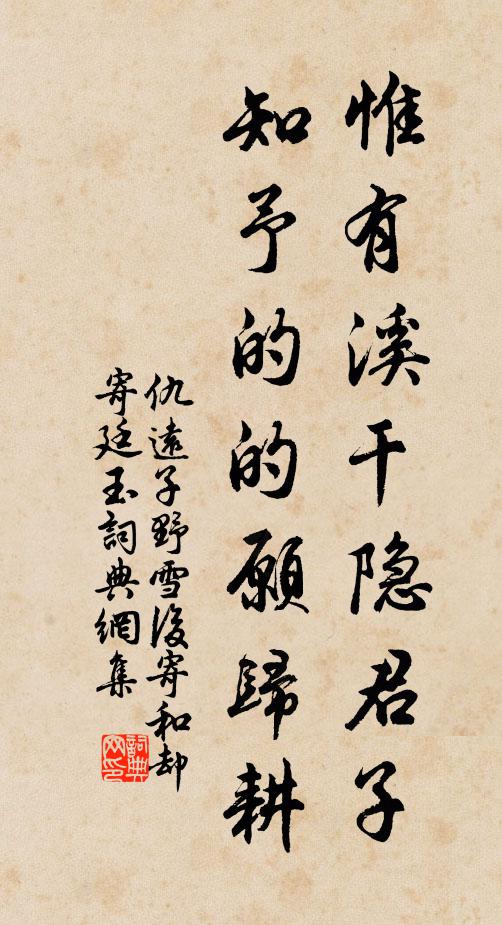 惟有溪干隐君子
知予的的願歸耕
仇遠子野雪後寄和却
寄廷玉詞典網集
詞典网印